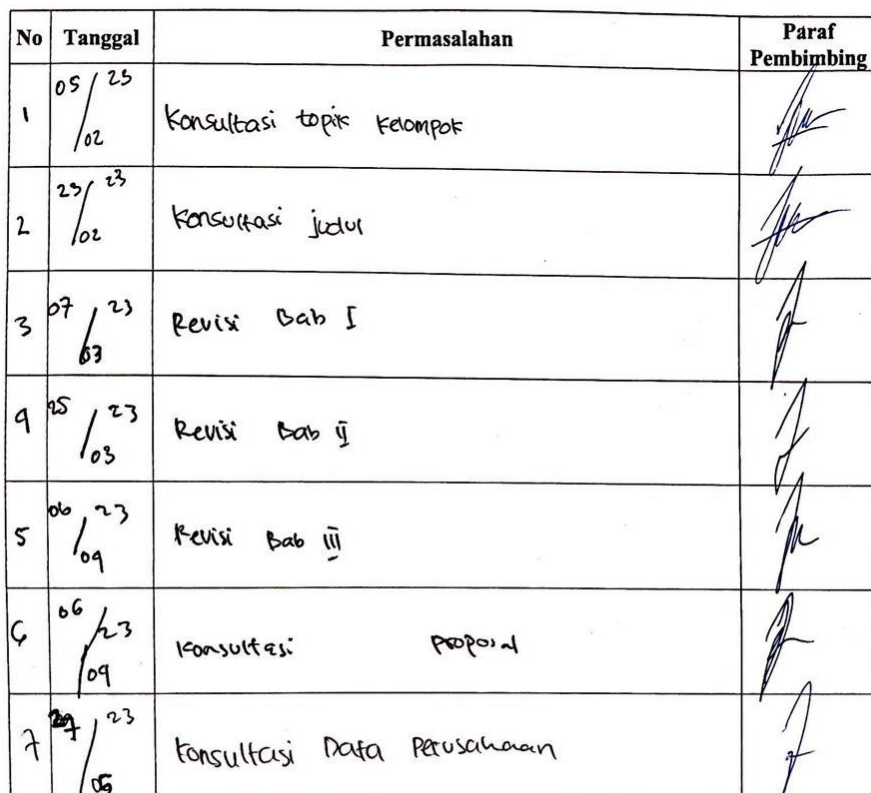 No Tanggal Permasalahan Paraf Pembimbing
1 05/02 23 Konsultasi topik Kelompok
2 23/02 23 Konsultasi judul
3 07/03 23 Revisi Bab I
4 25/03 23 Revisi Bab II
5 06/04 23 Revisi Bab III
6 06/04 23 Konsultasi proposal
7 23 Konsultasi Data Perusahaan